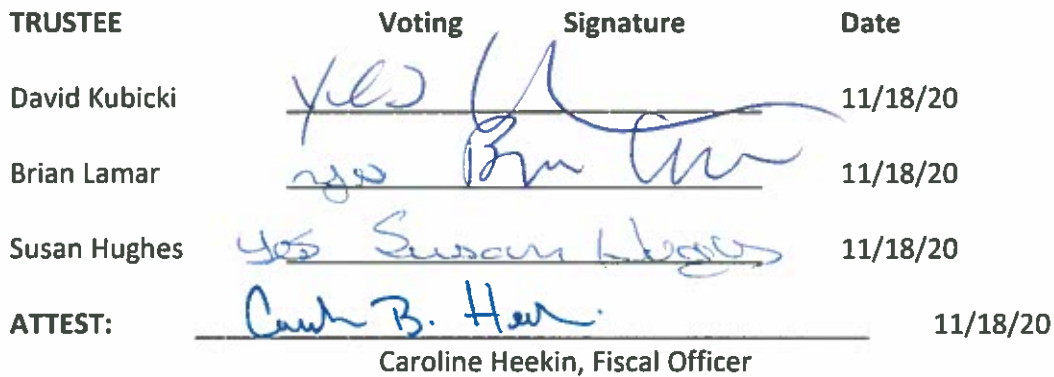 TRUSTEE Voting Signature Date
David Kubicki Yes 11/18/20
Brian Lamar yes Brian 11/18/20
Susan Hughes yes Susan Hughes 11/18/20
ATTEST: B. 11/18/20
Caroline Heekin, Fiscal Officer